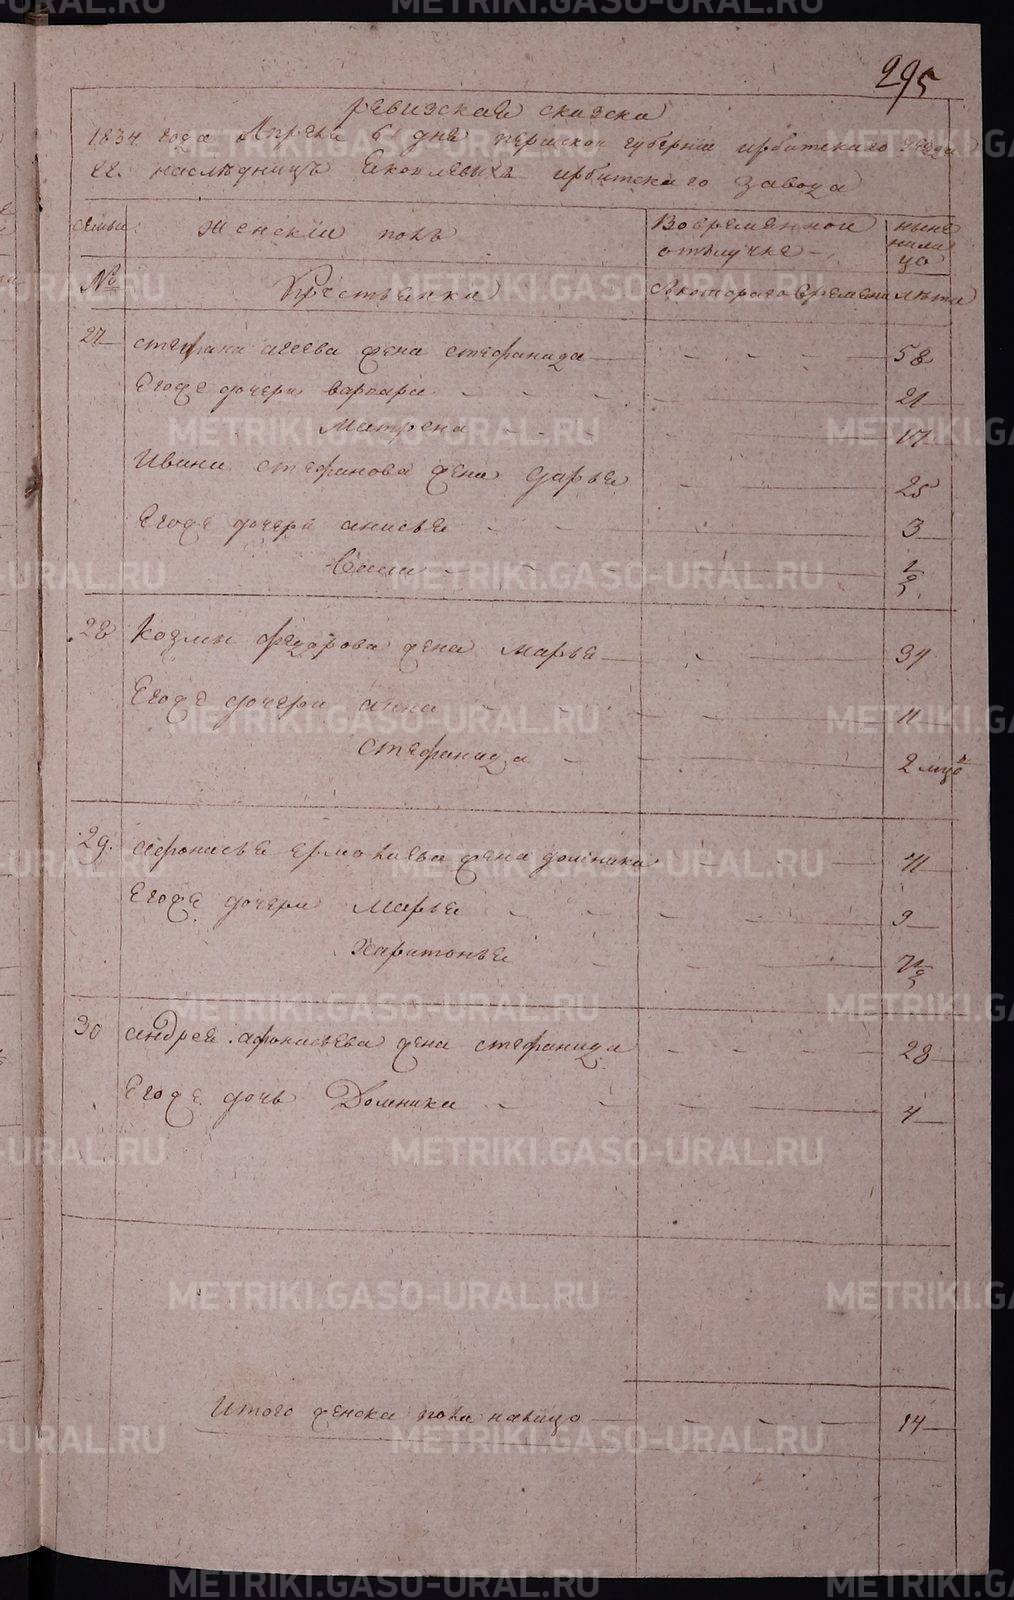 295
ревизская сказска
1834 года Апреля 6 дня пермской губернии ирбитского уезда
гг. наследниц Яковлевых ирбитского завода
семьи
женский пол
Во временной отлучке
ныне на лицо
№
Крестьянки
С которого времени
лета
27 стефана агеева жена стефанида 58
Егоже дочери варвара 21
Матрена 17
Ивана стефанова жена дарья 25
Егоже дочери анисья 3
1/2
28 козмы федорова жена марья 34
Егоже дочери анна 11
стефанида 2 мцъ
29. афонасья ермолаева жена домника 41
Егоже дочери Марья 9
Харитонья 7 1/2
30 андрея афонасьева жена стефанида 28
Егоже дочь Домника 4
Итого женска пола налицо 14
METRIKI.GASO-URAL.RU